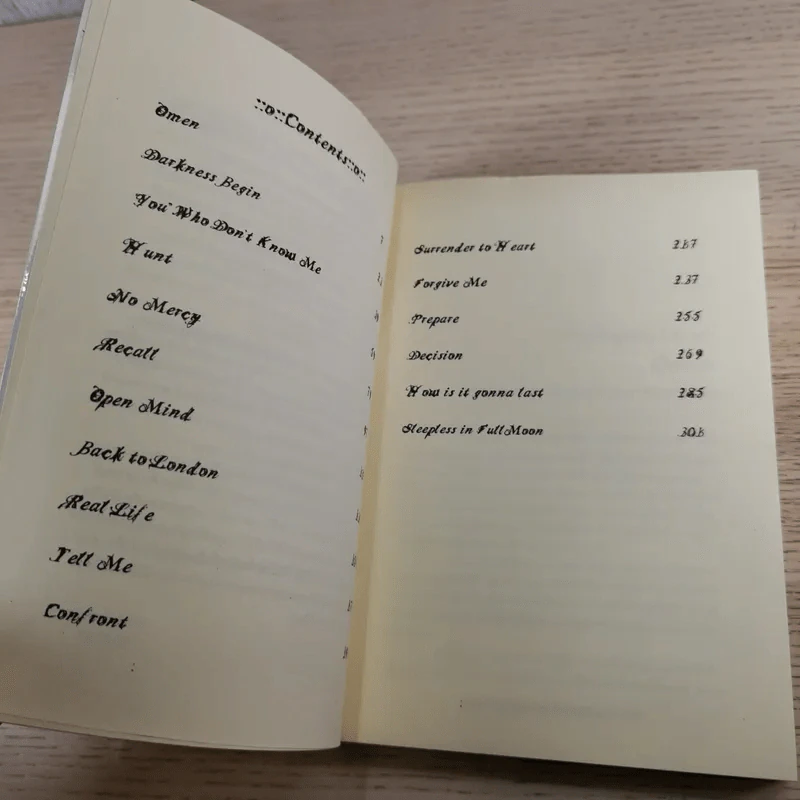 ::o::Contents::o::
Omen
Darkness Begin
You Who Don't Know Me
Hunt
No Mercy
Recall
Open Mind
Back to London
Real Life
Tell Me
Confront
Surrender to Heart
Forgive Me 237
Prepare 255
Decision 269
How is it gonna last 285
Sleepless in Full Moon